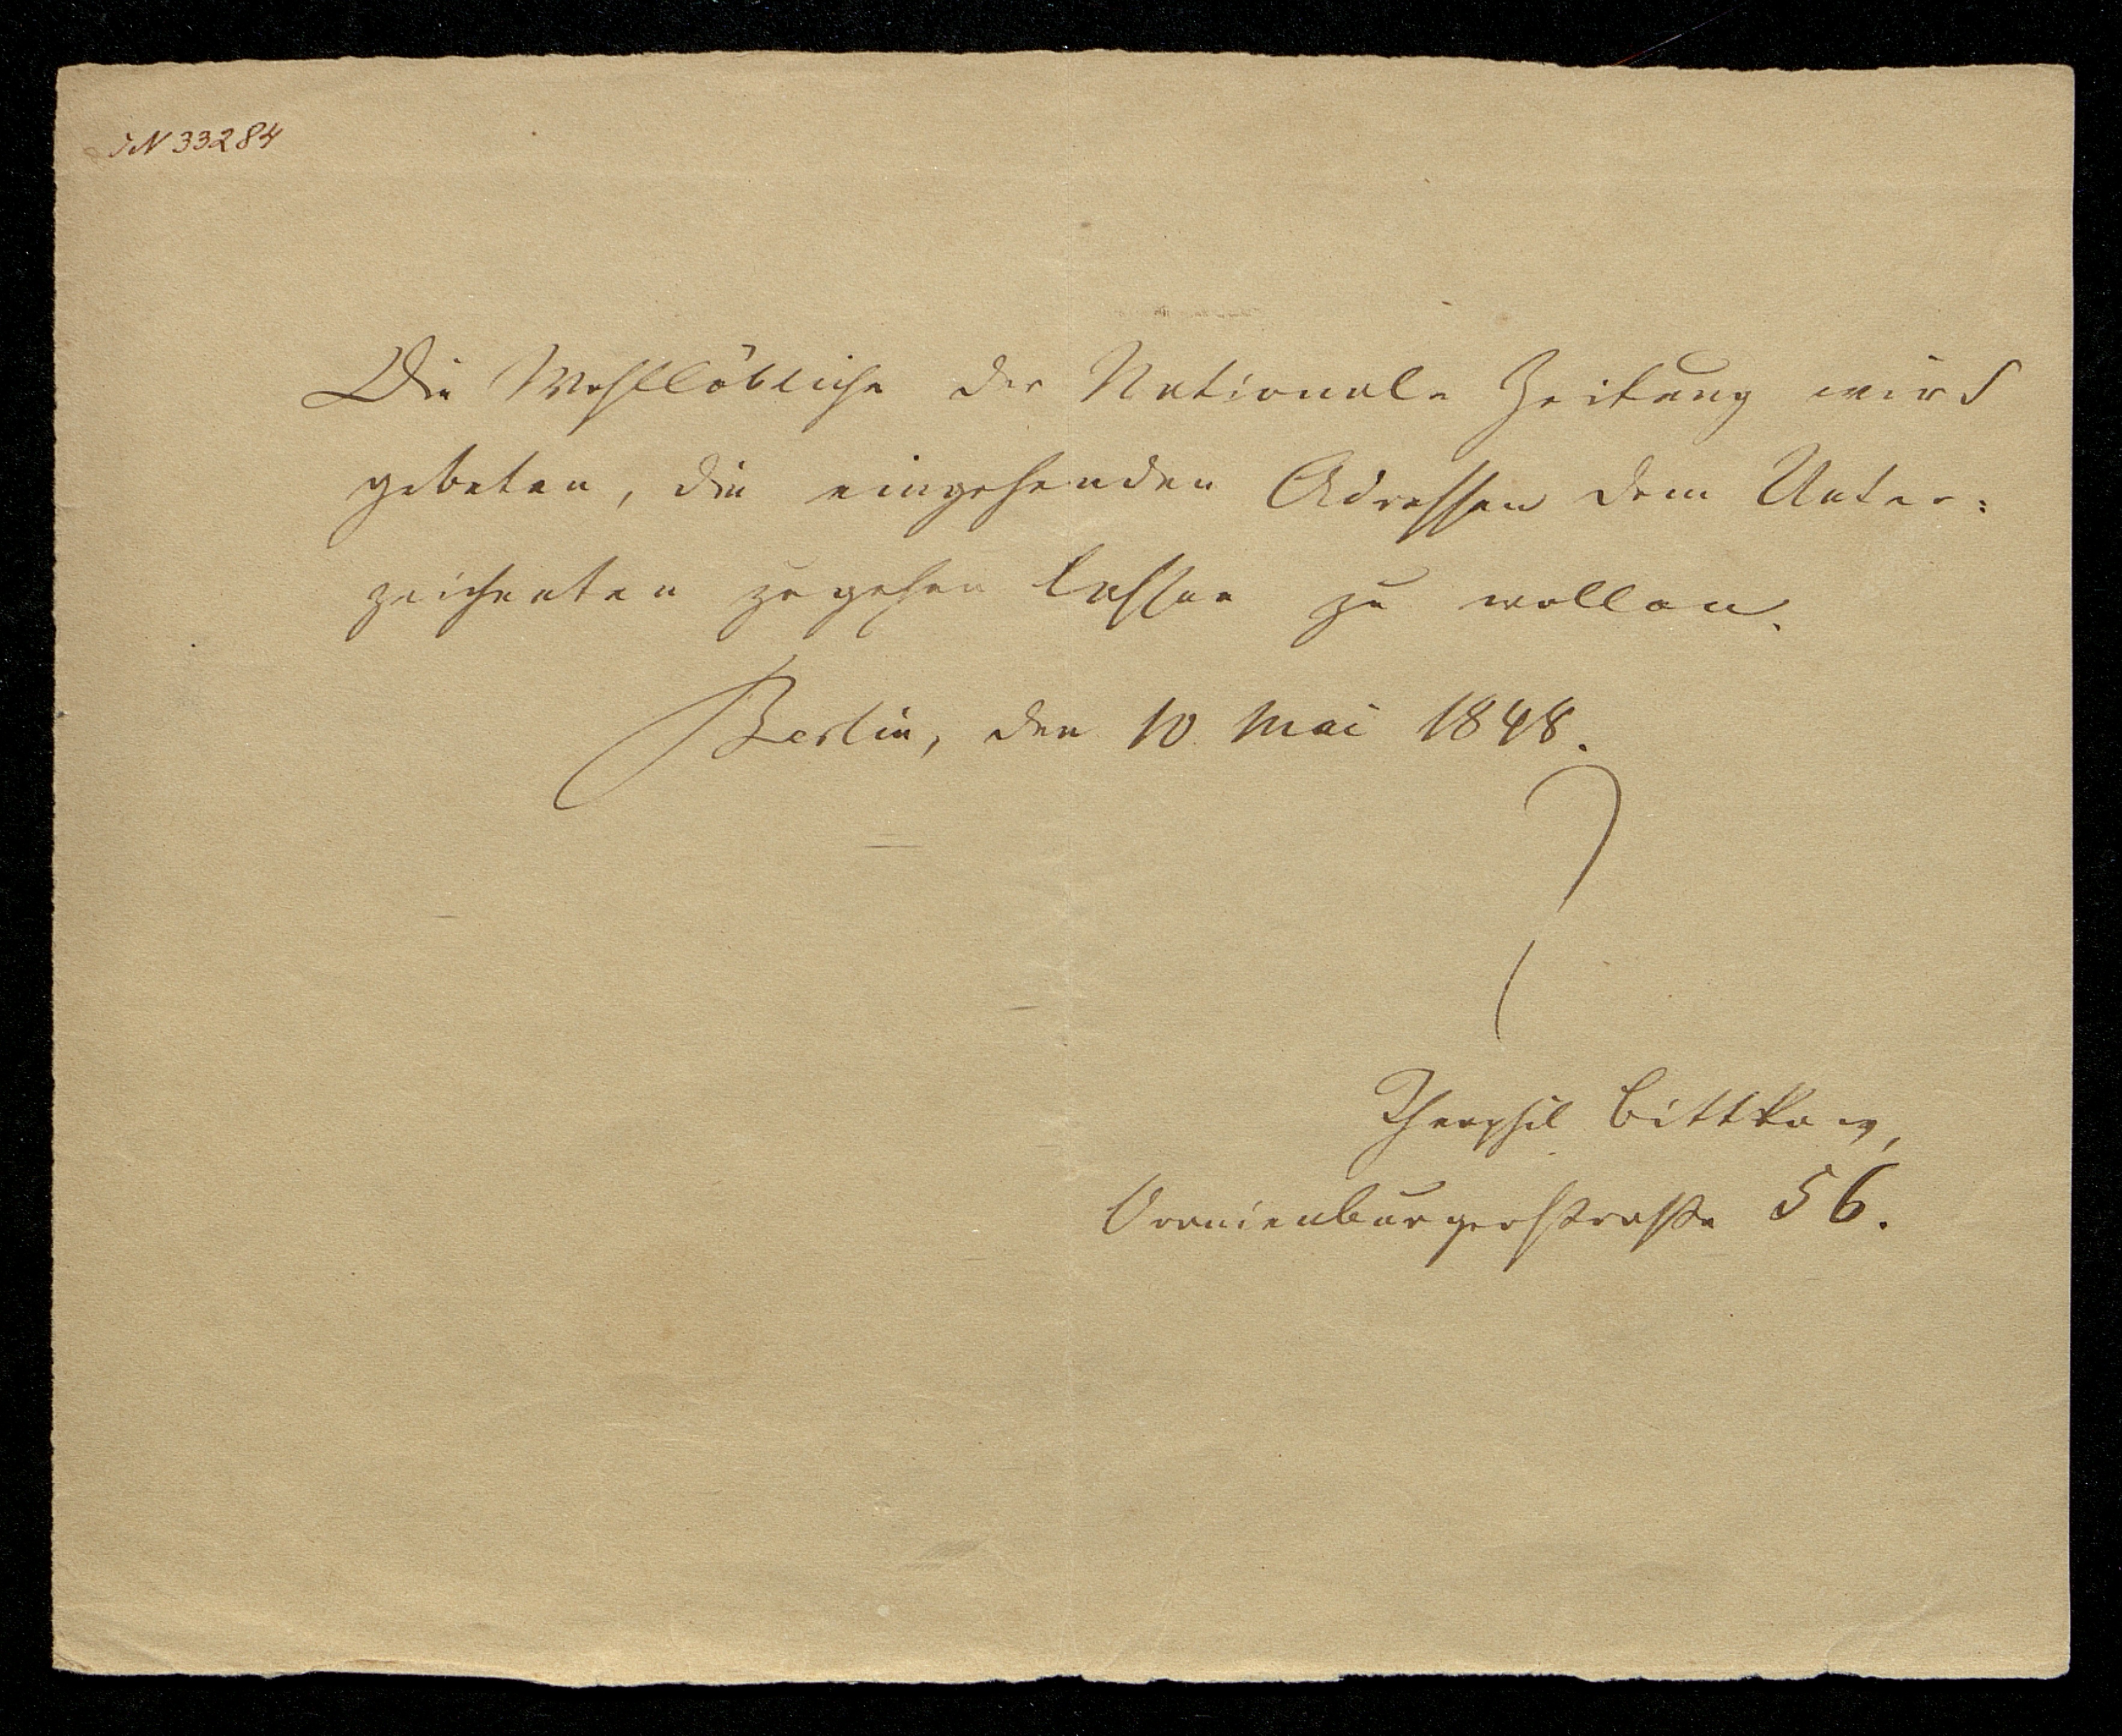 IN 33284
Die Wohllöbliche der National-Zeitung wird
gebeten, die eingehenden Adressen dem Unter-
zeichneten zugehen lassen zu wollen.
Berlin, den 10 Mai 1848.
Theophil Bittkow,
Oranienburgerstraße 56.